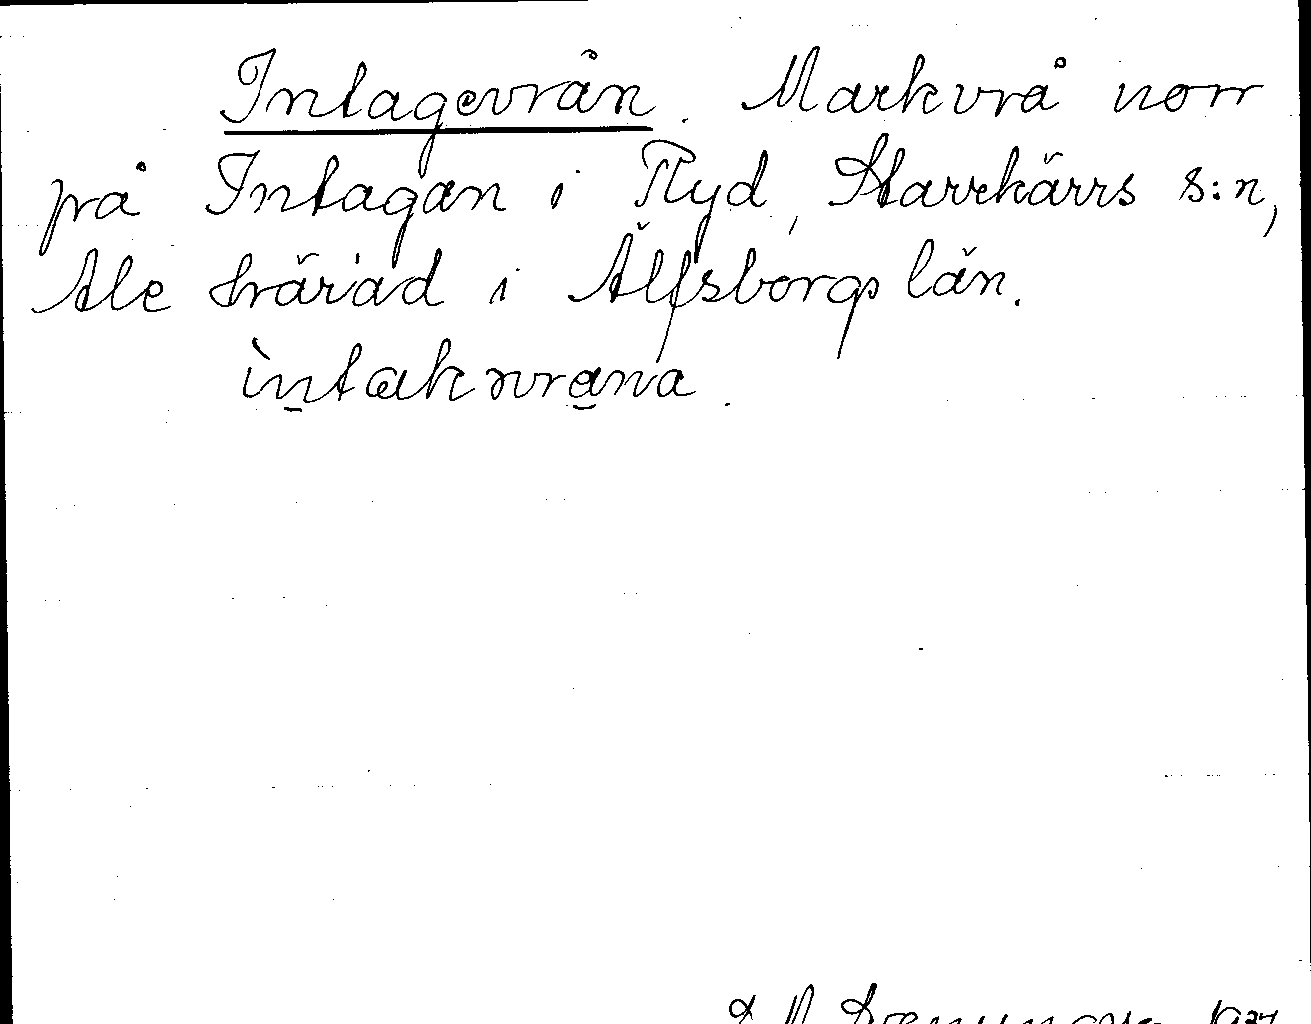 Intagevrån. Markvrå norr
på Intagan i Ryd, Starrkärrs s:n,
Ale härad i Älfsborgs län.
ìntakvrana.